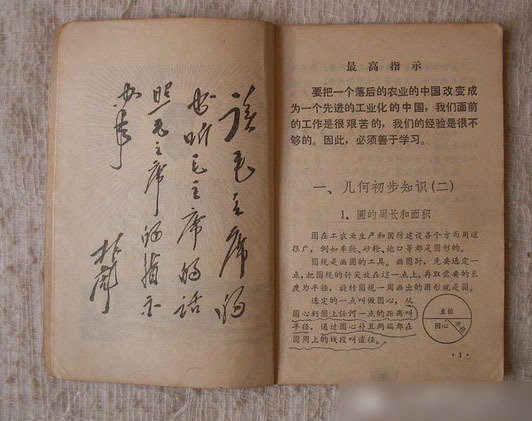 读毛主席的
书听毛主席的话
照毛主席的指示
办事
林彪
最高指示
要把一个落后的农业的中国改变成
为一个先进的工业化的中国，我们面前
的工作是很艰苦的，我们的经验是很不
够的。因此，必须善于学习。
一、几何初步知识(二)
1. 圆的周长和面积
圆在工农业生产和国防建设各个方面用途
很广，例如车轮、砂轮、炮口等都是圆形的。
圆规是画圆的工具。画圆时，先要选定一
点，把圆规的针尖放在这一点上，再取需要的长度
为半径，旋转圆规一周画出的图形就是圆。
选定的一点叫做圆心，从
圆心到圆上任何一点的距离叫
半径，通过圆心并且两端都在
圆周上的线段叫直径。
直径
圆心
半径
· 1 ·